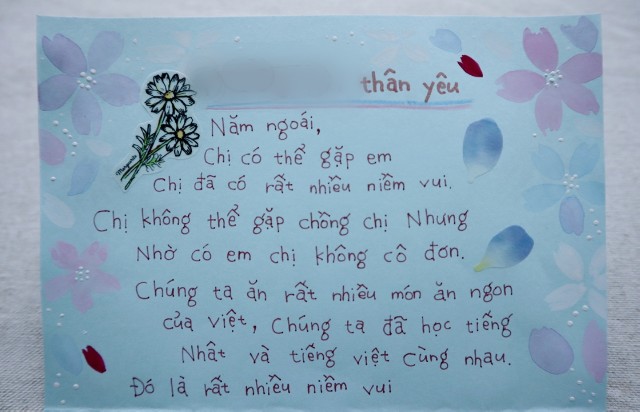 thân yêu
Năm ngoái,
Chị có thể gặp em
Chị đã có rất nhiều niềm vui.
Chị không thể gặp chồng chị Nhưng
Nhờ có em chị không cô đơn.
Chúng ta ăn rất nhiều món ăn ngon
của việt, Chúng ta đã học tiếng
Nhât và tiếng việt cùng nhau.
Đó là rất nhiều niềm vui